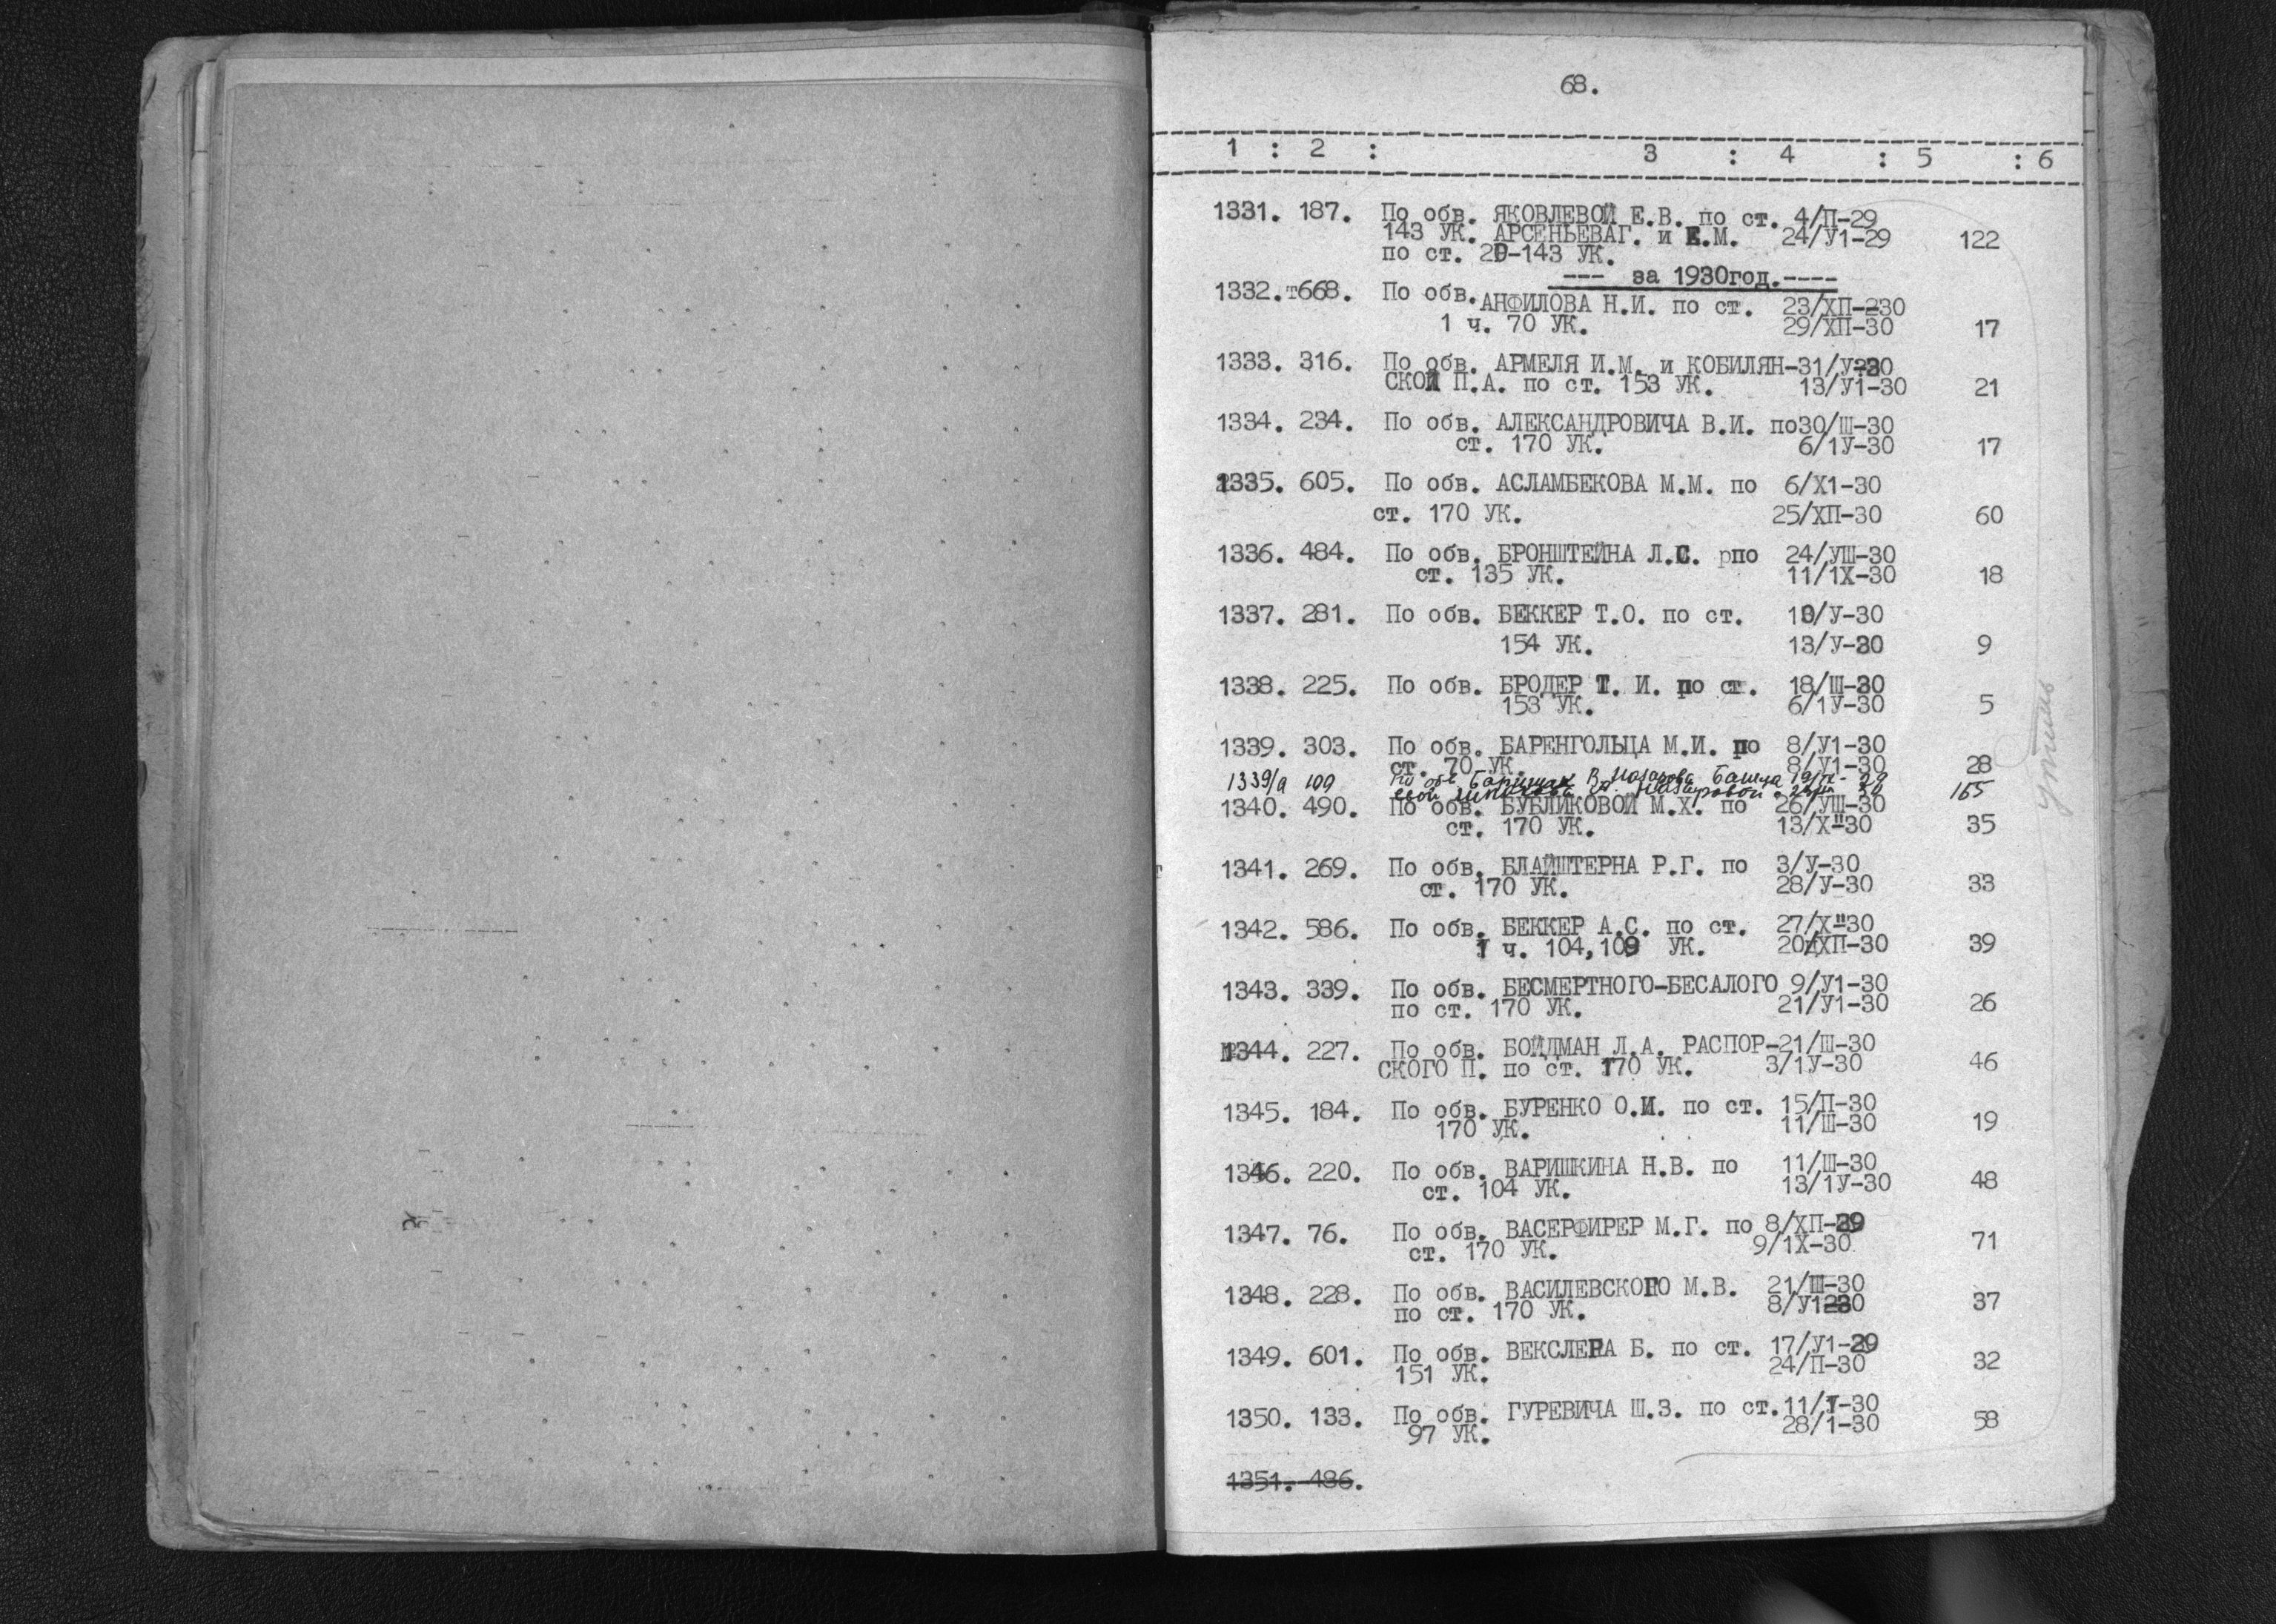 68.
1 : 2 : 3 : 4 : 5 : 6
1331. 187. По обв. ЯКОВЛЕВОЙ Е.В. по ст. 4/П-29
143 УК. АРСЕНЬЕВАГ. и Е.М. 24/У1-29 122
по ст. 29-143 УК.
--- за 1930год.----
1332.т668. По обв. АНФИЛОВА Н.И. по ст. 23/ХП-230
1 ч. 70 УК. 29/ХП-30 17
1333. 316. По обв. АРМЕЛЯ И.М. и КОБИЛЯН-31/У-30
СКОЙ П.А. по ст. 153 УК. 13/У1-30 21
1334. 234. По обв. АЛЕКСАНДРОВИЧА В.И. по30/Ш-30
ст. 170 УК. 6/1У-30 17
1335. 605. По обв. АСЛАМБЕКОВА М.М. по 6/Х1-30
ст. 170 УК. 25/ХП-30 60
1336. 484. По обв. БРОНШТЕЙНА Л.С. рпо 24/УШ-30
ст. 135 УК. 11/1Х-30 18
1337. 281. По обв. БЕККЕР Т.О. по ст. 10/У-30
154 УК. 13/У-30 9
1338. 225. По обв. БРОДЕР Т. И. по ст. 18/Ш-30
153 УК. 6/1У-30 5
1339. 303. По обв. БАРЕНГОЛЬЦА М.И. по 8/У1-30
ст. 70 УК. 8/У1-30 28
1339/а 109 По обв. 165
1340. 490. По обв. БУБЛИКОВОЙ М.Х. по 26/УШ-30
ст. 170 УК. 13/Х"-30 35
1341. 269. По обв. БЛАЙШТЕРНА Р.Г. по 3/У-30
ст. 170 УК. 28/У-30 33
1342. 586. По обв. БЕККЕР А.С. по ст. 27/Х"-30
1 ч. 104,109 УК. 20/ХП-30 39
1343. 339. По обв. БЕСМЕРТНОГО-БЕСАЛОГО 9/У1-30
по ст. 170 УК. 21/У1-30 26
1344. 227. По обв. БОЙДМАН Л.А. РАСПОР-21/Ш-30
СКОГО П. по ст. 170 УК. 3/1У-30 46
1345. 184. По обв. БУРЕНКО О.И. по ст. 15/П-30
170 УК. 11/Ш-30 19
1346. 220. По обв. ВАРИШКИНА Н.В. по 11/Ш-30
ст. 104 УК. 13/1У-30 48
1347. 76. По обв. ВАСЕРФИРЕР М.Г. по 8/ХП-29
ст. 170 УК. 9/1Х-30 71
1348. 228. По обв. ВАСИЛЕВСКОГО М.В. 21/Ш-30
по ст. 170 УК. 8/У1-30 37
1349. 601. По обв. ВЕКСЛЕРА Б. по ст. 17/У1-29
151 УК. 24/П-30 32
1350. 133. По обв. ГУРЕВИЧА Ш.З. по ст.11/1-30
97 УК. 28/1-30 58
1351. 486.
утиль